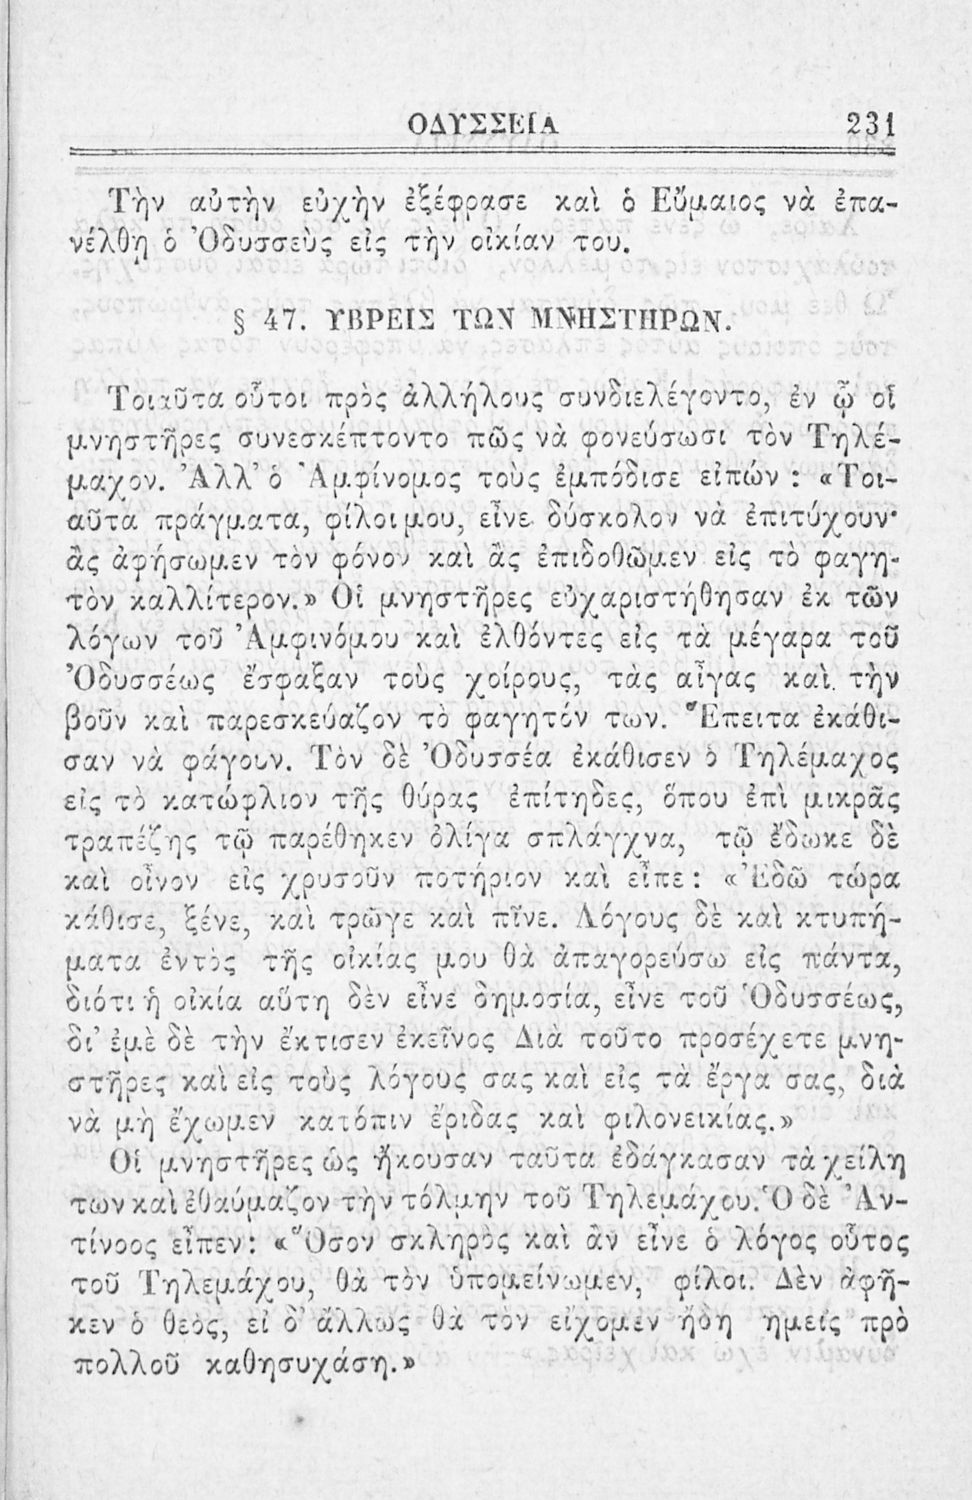 ΟΔΥΣΣΕΙΑ 231
Τὴν αὐτὴν εὐχὴν ἐξέφρασε καὶ ὁ Εὔμαιος νὰ ἐπα-
νέλθῃ ὁ Ὀδυσσεὺς εἰς τὴν οἰκίαν του.
§ 47. ΥΒΡΕΙΣ ΤΩΝ ΜΝΗΣΤΗΡΩΝ.
Τοιαῦτα οὗτοι πρὸς ἀλλήλους συνδιελέγοντο, ἐν ᾧ οἱ
μνηστῆρες συνεσκέπτοντο πῶς νὰ φονεύσωσι τὸν Τηλέ-
μαχον. Ἀλλ' ὁ Ἀμφίνομος τοὺς ἐμπόδισε εἰπών : «Τοι-
αῦτα πράγματα, φίλοι μου, εἶνε δύσκολον νὰ ἐπιτύχουν·
ἂς ἀφήσωμεν τὸν φόνον καὶ ἂς ἐπιδοθῶμεν εἰς τὸ φαγη-
τὸν καλλίτερον.» Οἱ μνηστῆρες εὐχαριστήθησαν ἐκ τῶν
λόγων τοῦ Ἀμφινόμου καὶ ἐλθόντες εἰς τὰ μέγαρα τοῦ
Ὀδυσσέως ἔσφαξαν τοὺς χοίρους, τὰς αἶγας καὶ τὴν
βοῦν καὶ παρεσκεύαζον τὸ φαγητόν των. Ἔπειτα ἐκάθι-
σαν νὰ φάγουν. Τὸν δὲ Ὀδυσσέα ἐκάθισεν ὁ Τηλέμαχος
εἰς τὸ κατώφλιον τῆς θύρας ἐπίτηδες, ὅπου ἐπὶ μικρᾶς
τραπέζης τῷ παρέθηκεν ὀλίγα σπλάγχνα, τῷ ἔδωκε δὲ
καὶ οἶνον εἰς χρυσοῦν ποτήριον καὶ εἶπε : «Ἐδῶ τώρα
κάθισε, ξένε, καὶ τρῶγε καὶ πῖνε. Λόγους δὲ καὶ κτυπή-
ματα ἐντὸς τῆς οἰκίας μου θὰ ἀπαγορεύσω εἰς πάντα,
διότι ἡ οἰκία αὕτη δὲν εἶνε δημοσία, εἶνε τοῦ Ὀδυσσέως,
δι' ἐμὲ δὲ τὴν ἔκτισεν ἐκεῖνος Διὰ τοῦτο προσέχετε μνη-
στῆρες καὶ εἰς τοὺς λόγους σας καὶ εἰς τὰ ἔργα σας, διὰ
νὰ μὴ ἔχωμεν κατόπιν ἔριδας καὶ φιλονεικίας.»
Οἱ μνηστῆρες ὡς ἤκουσαν ταῦτα ἐδάγκασαν τὰ χείλη
των καὶ ἐθαύμαζον τὴν τόλμην τοῦ Τηλεμάχου. Ὁ δὲ Ἀν-
τίνοος εἶπεν : «Ὅσον σκληρὸς καὶ ἂν εἶνε ὁ λόγος οὗτος
τοῦ Τηλεμάχου, θὰ τὸν ὑπομείνωμεν, φίλοι. Δὲν ἀφῆ-
κεν ὁ θεὸς, εἰ δ' ἄλλως θὰ τὸν εἴχομεν ἤδη ἡμεῖς πρὸ
πολλοῦ καθησυχάσῃ.»